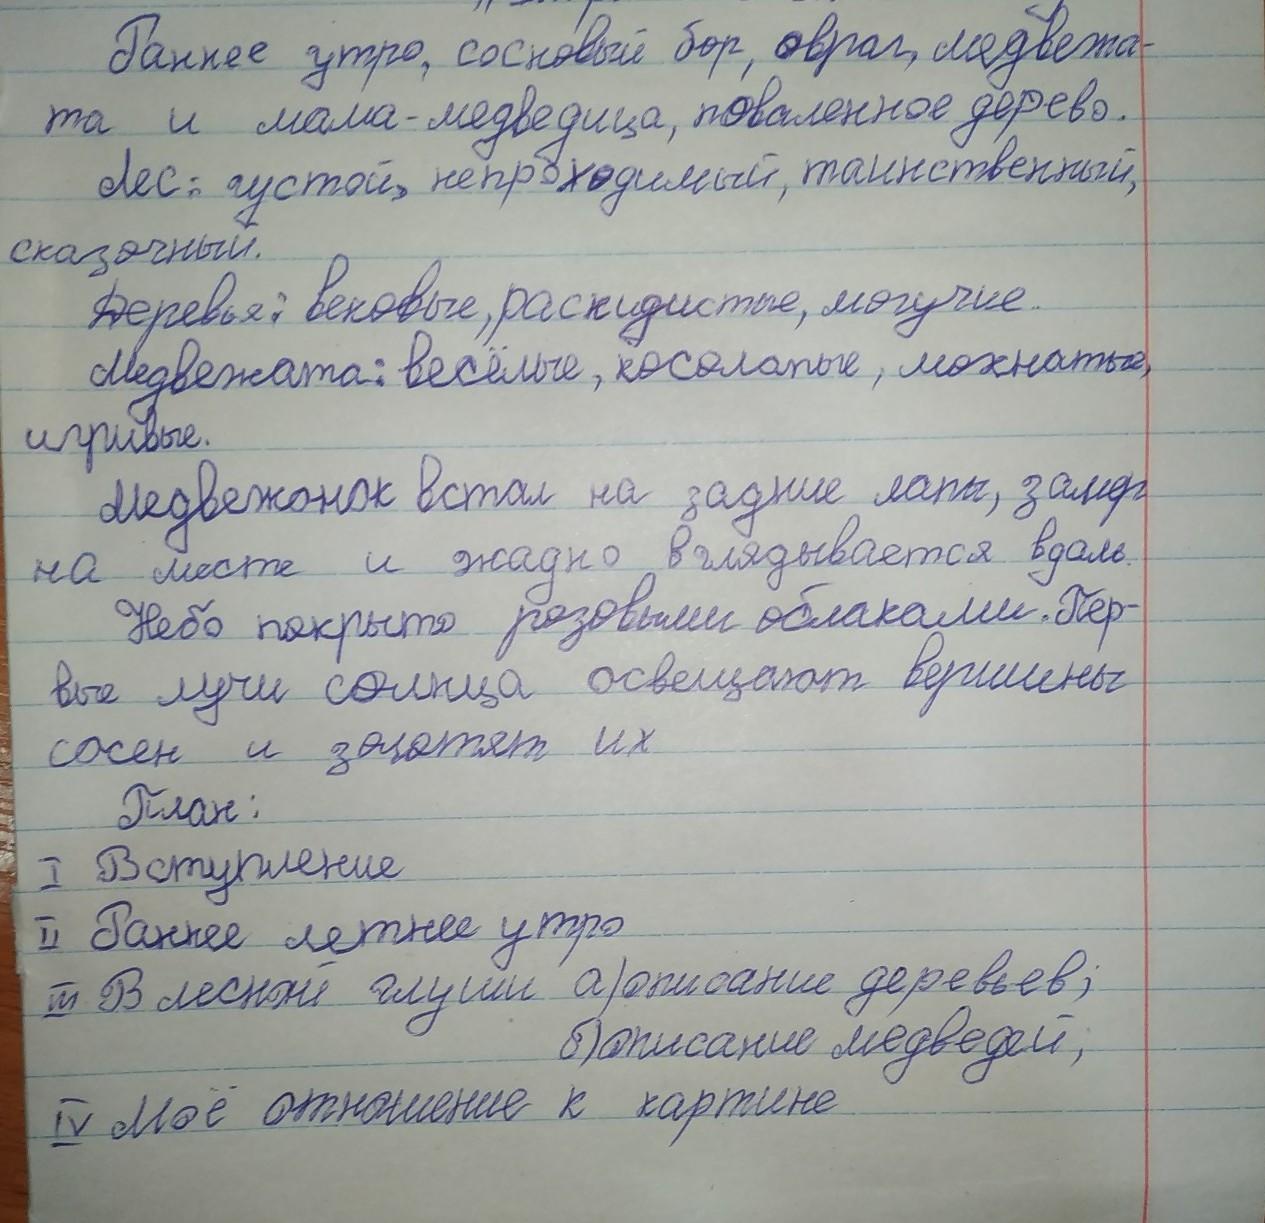 Раннее утро, сосновый бор, овраг, медвежа-
та и мама-медведица, поваленное дерево.
Лес: густой, непроходимый, таинственный,
сказочный.
Деревья: вековые, раскидистые, могучие.
Медвежата: весёлые, косолапые, мохнатые,
игривые.
Медвежонок встал на задние лапы, замер
на месте и жадно вглядывается вдаль.
Небо покрыто розовыми облаками. Пер-
вые лучи солнца освещают вершины
сосен и золотят их
План:
I Вступление
II Раннее летнее утро
III В лесной глуши а) описание деревьев;
б) описание медведей;
IV Моё отношение к картине